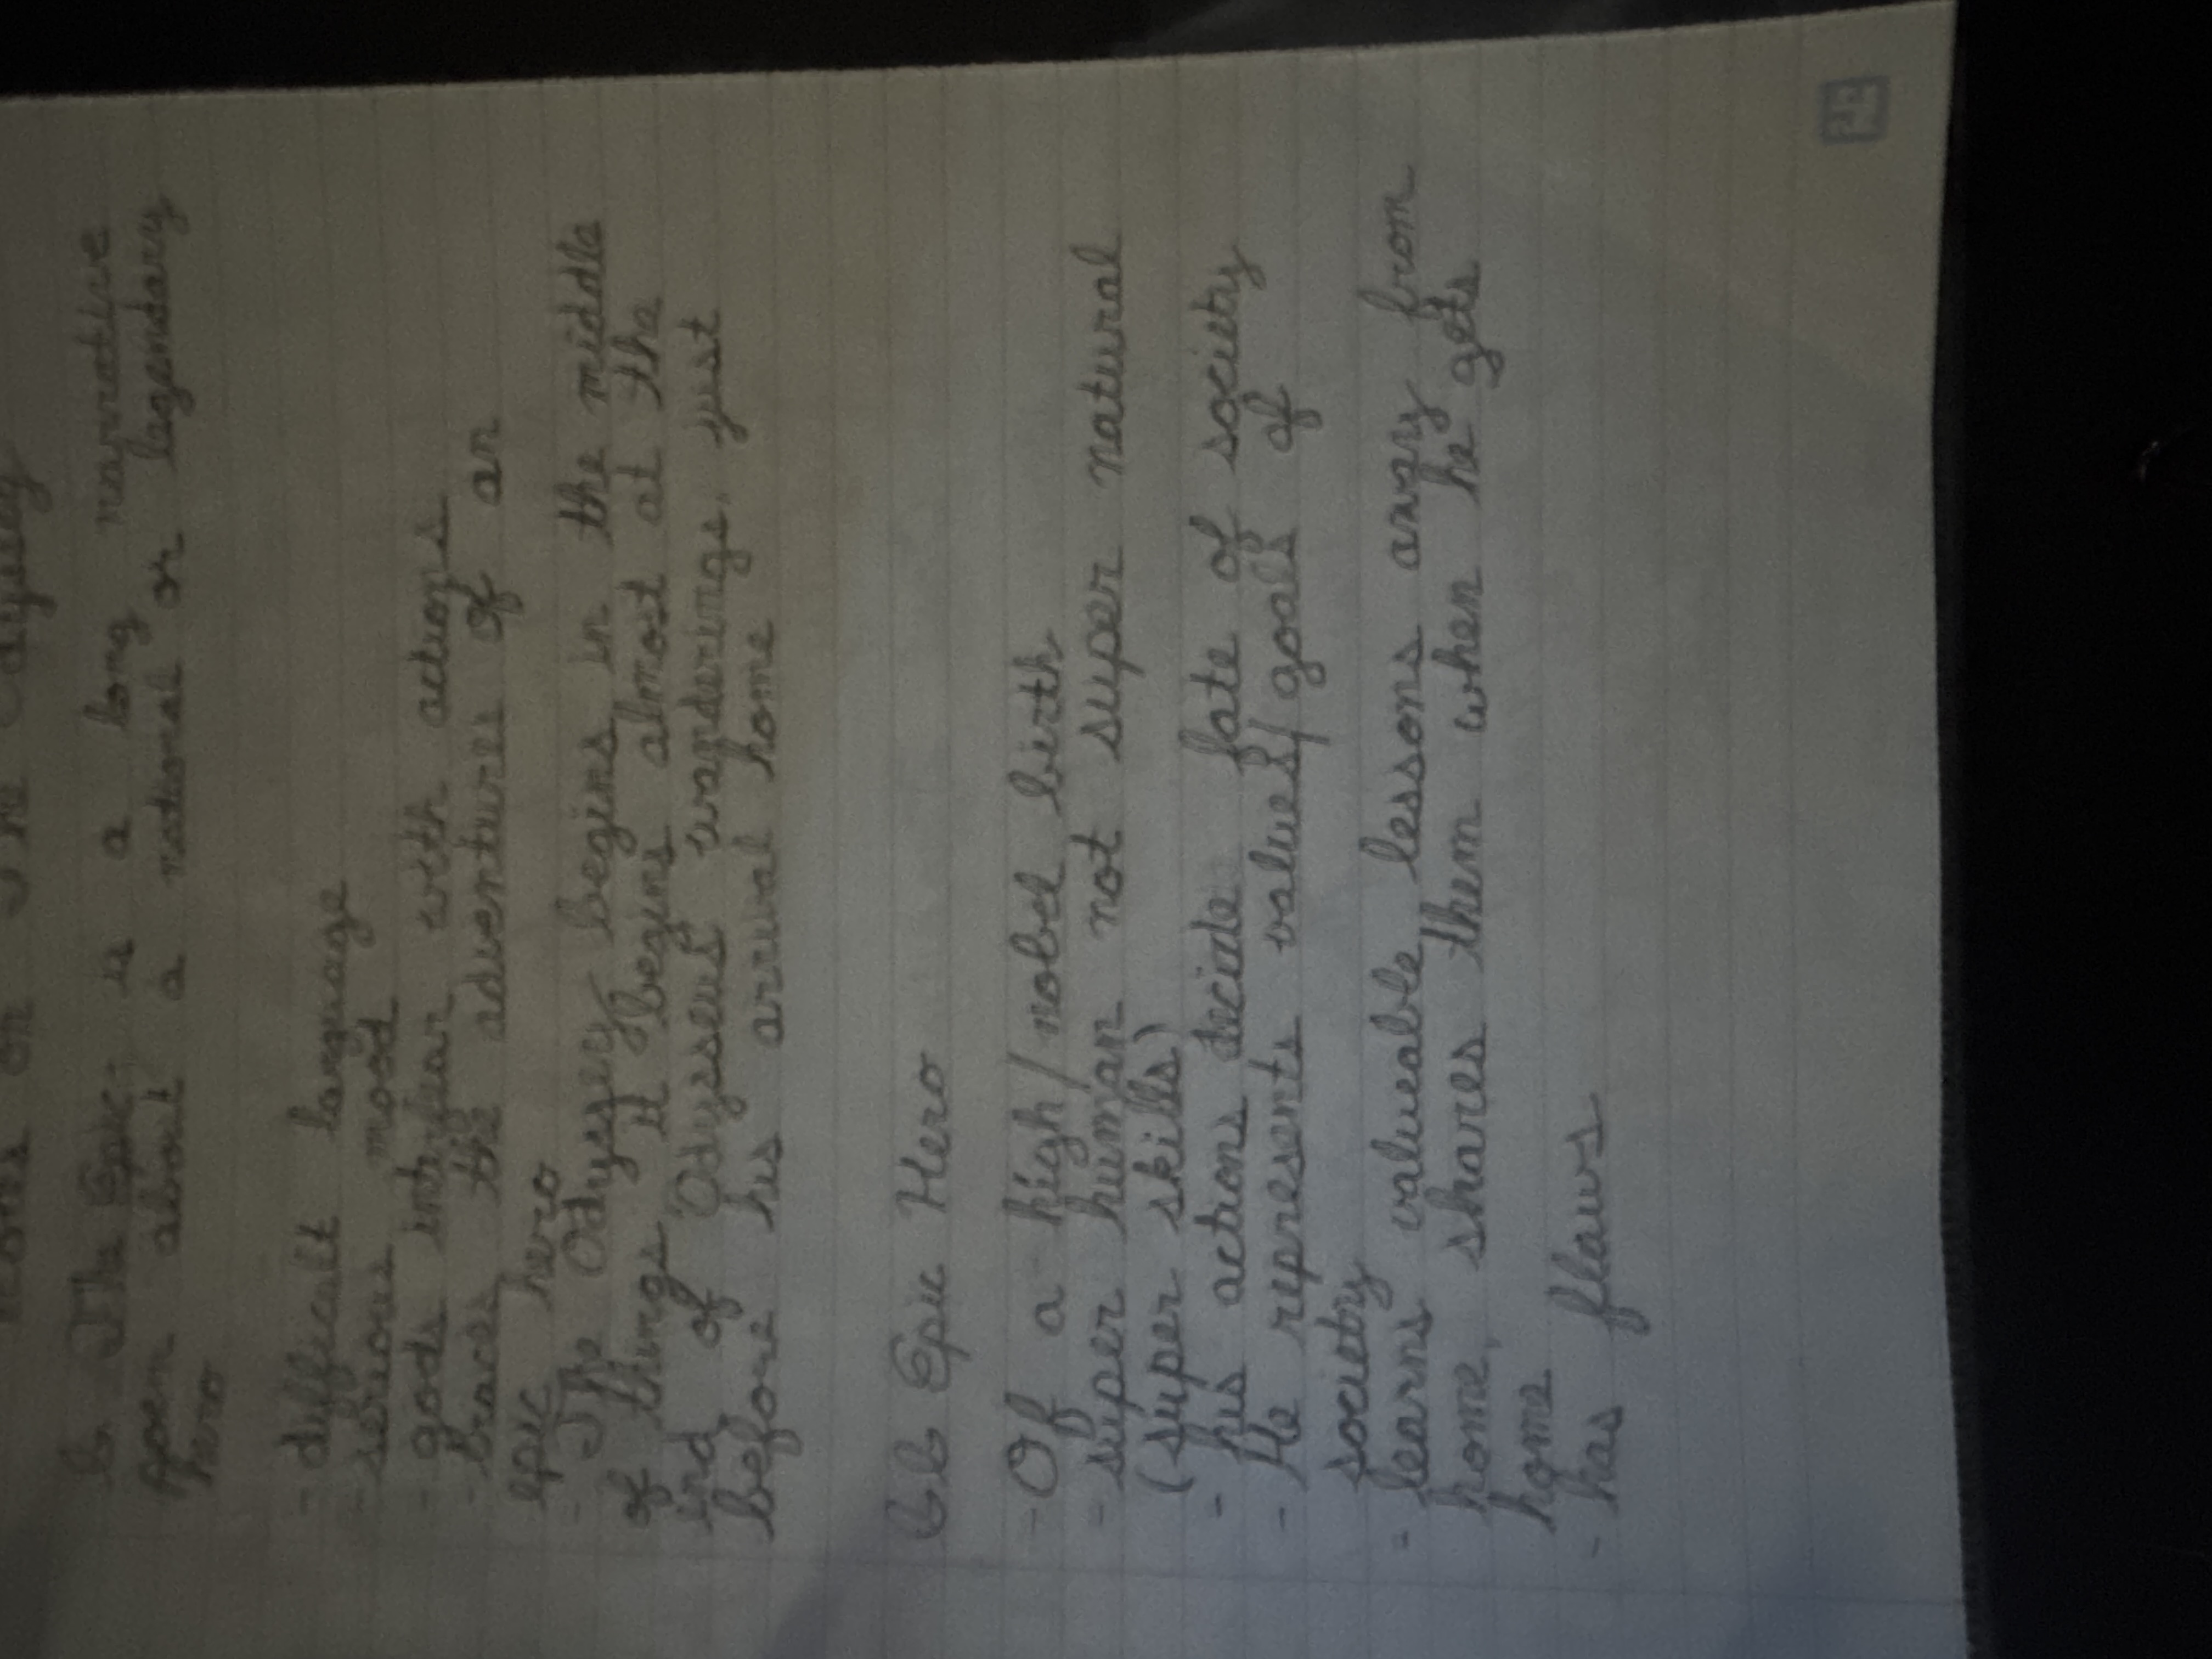 Notes on The Odyssey
6. The Epic: is a long narrative
poem about a national or legendary
hero
- difficult language
- serious mood
- gods interfear with actions
- traces the adventures of an
epic hero
- The Odyssey begins in the middle
of things. It begins almost at the
end of Odysseus wanderings, just
before his arrival home
Epic Hero
- Of a high/nobel birth
- super human not super natural
(super skills)
- his actions decide fate of society
- He represents values/goals of
society
- learns valueable lessons away from
home, shares them when he gets
home
- has flaws